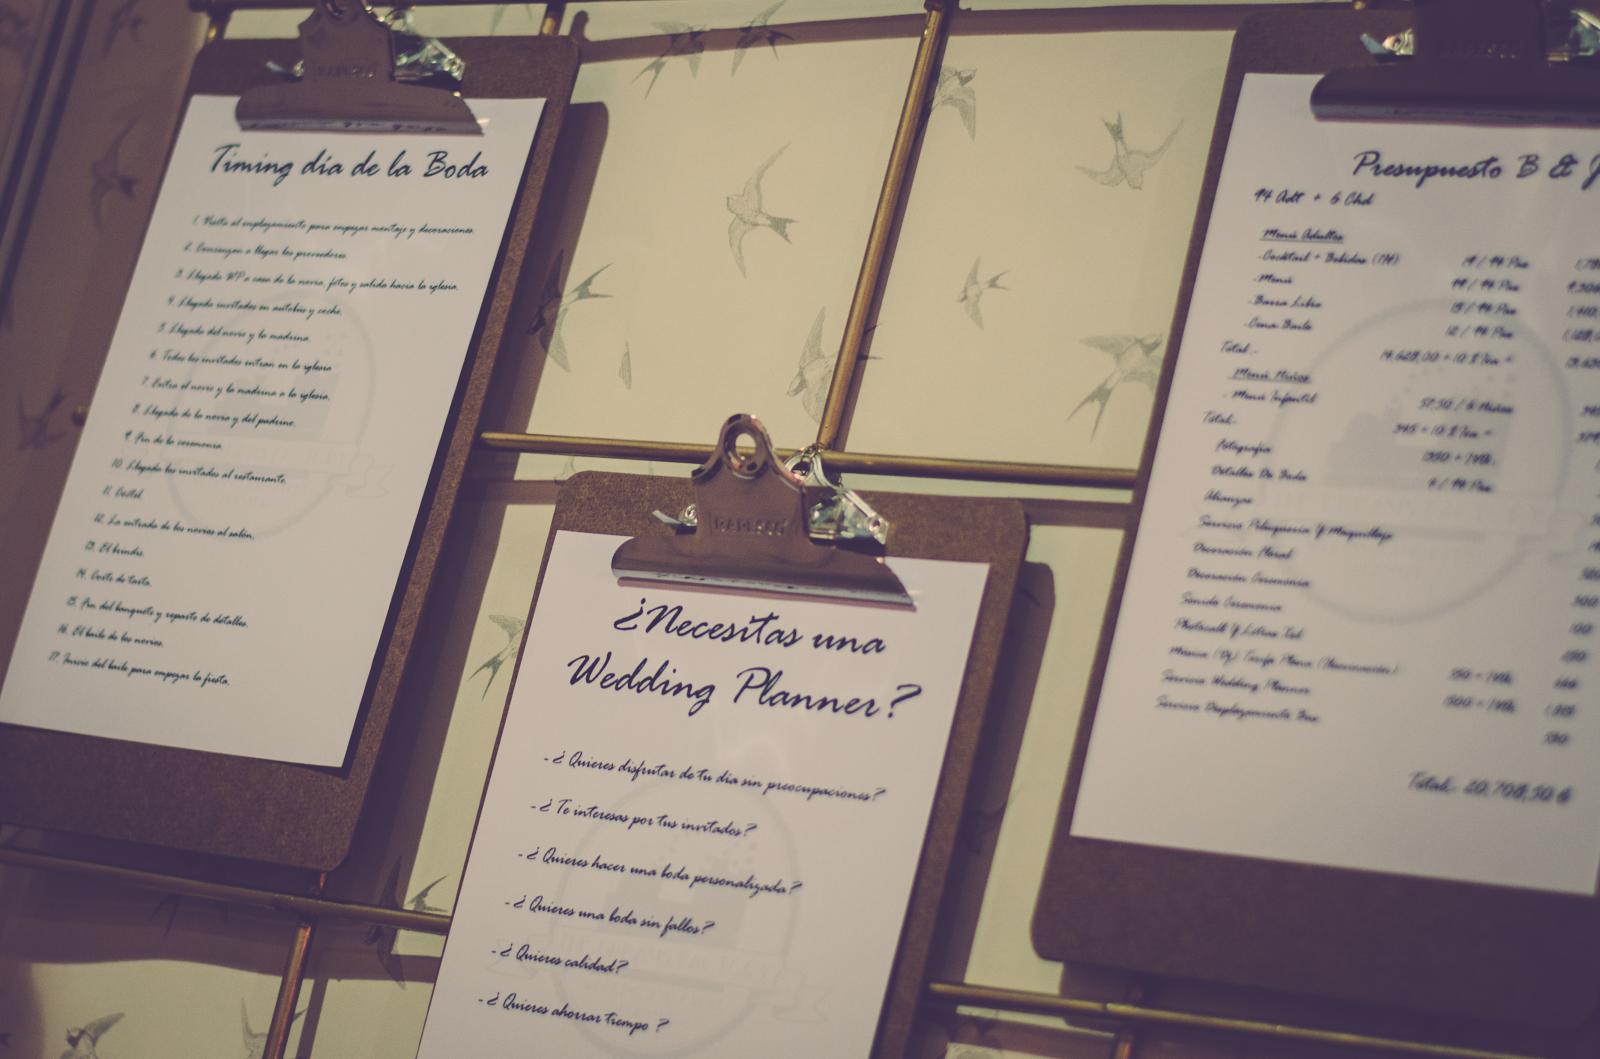 RAPESCO
Timing día de la Boda
1. Visita al emplazamiento para empezar montaje y decoraciones.
2. Comienzan a llegar los proveedores.
3. Llegada WP a casa de la novia, fotos y salida hacia la iglesia.
4. Llegada invitados en autobús y coche.
5. Llegada del novio y la madrina.
6. Todos los invitados entran en la iglesia
7. Entra el novio y la madrina a la iglesia.
8. Llegada de la novia y del padrino.
9. Fin de la ceremonia
10. Llegada los invitados al restaurante.
11. Coctel
12. La entrada de los novios al salón.
13. El brindis.
14. Corte de tarta.
15. Fin del banquete y reparto de detalles.
16. El baile de los novios.
17. Inicio del baile para empezar la fiesta.
RAPESCO
¿Necesitas una
Wedding Planner?
- ¿ Quieres disfrutar de tu día sin preocupaciones?
- ¿ Te interesas por tus invitados?
- ¿ Quieres hacer una boda personalizada?
- ¿ Quieres una boda sin fallos?
- ¿ Quieres calidad?
- ¿ Quieres ahorrar tiempo ?
Presupuesto B & J
94 Adt + 6 Chd
Menú Adultos
-Cocktail + Bebidas (1H) 19 / 94 Pax
-Menú 99 / 94 Pax
-Barra Libre 15 / 94 Pax
-Cena Baile 12 / 94 Pax
Total.-
Menú Niños
- Menú Infantil 57,50 / 6 Niños
Total.- 345 + 10 % Iva =
Fotografía
Detalles De Boda
Alianzas
Servicio Peluquería Y Maquillaje
Decoración Floral
Decoración Ceremonia
Sonido Ceremonia
Photocall Y Letras
Música (Dj) Tarifa Plana (Iluminación)
Servicio Wedding Planner
Servicio Desplazamiento Bus
Total.- 20,708,50 €